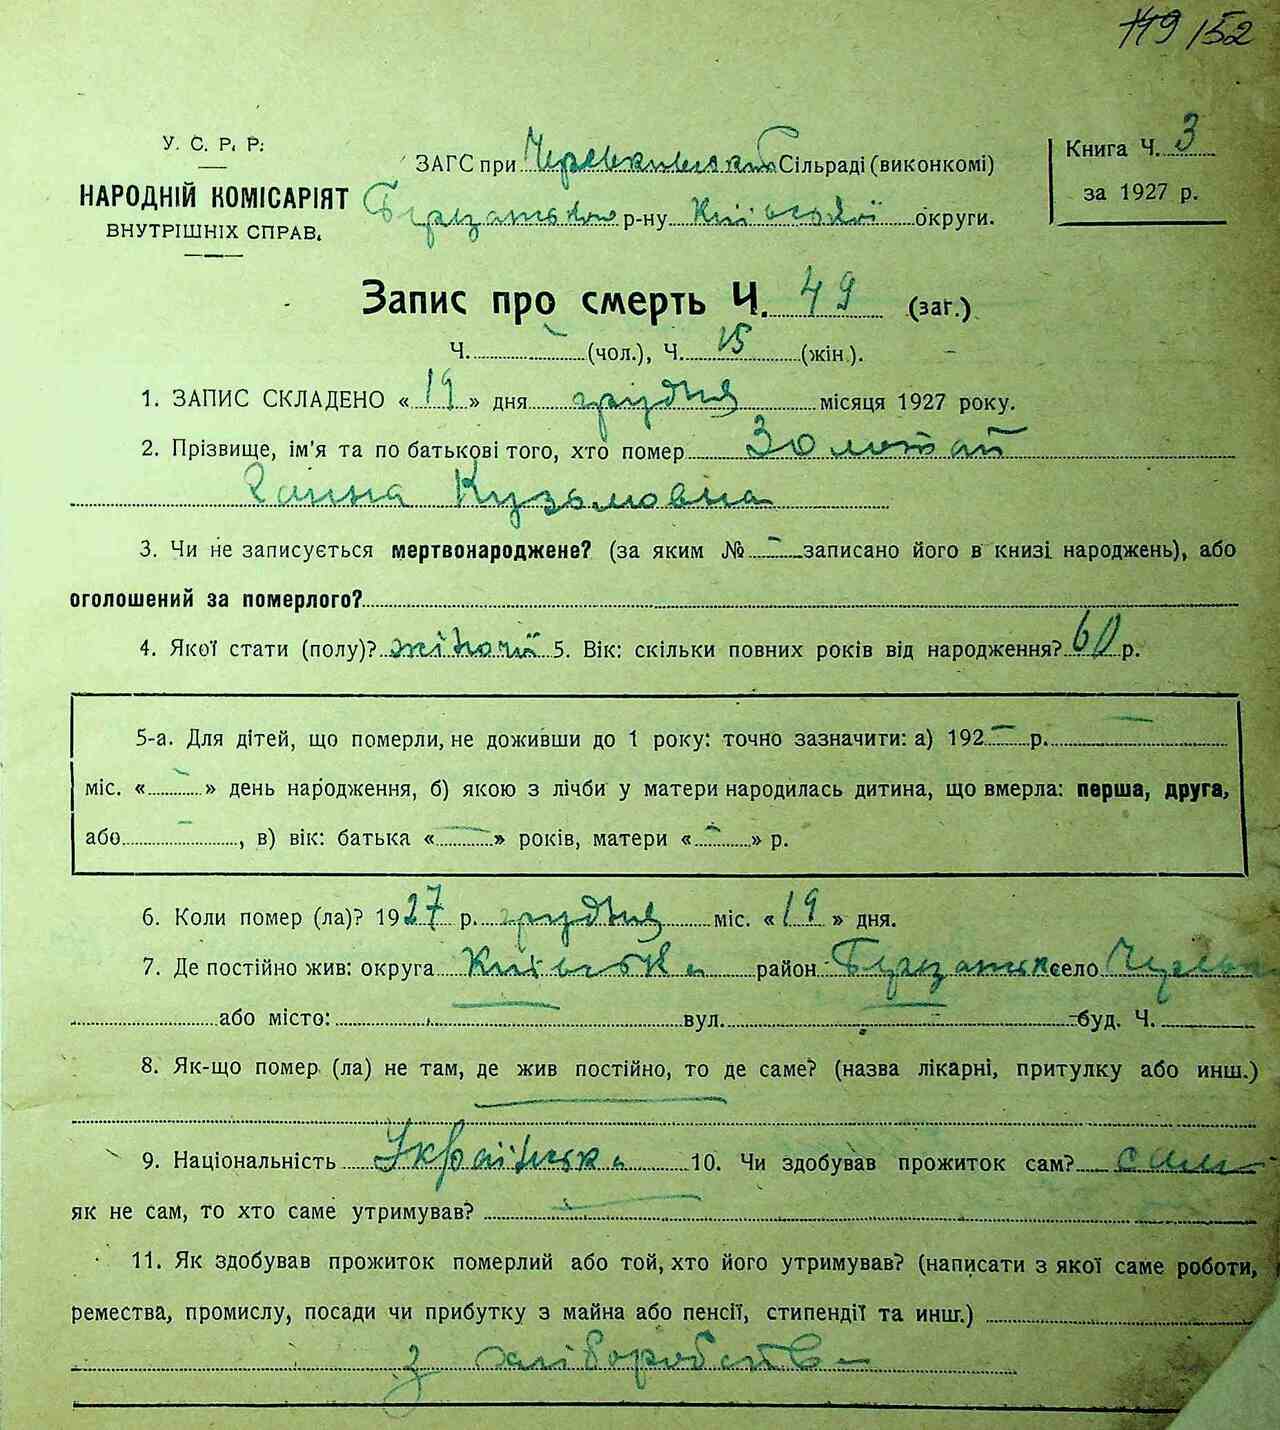 119 / 52
У. С. Р. Р.
НАРОДНІЙ КОМІСАРІЯТ
ВНУТРІШНІХ СПРАВ.
ЗАГС при Сільраді (виконкомі)
р-ну Київської округи.
Книга Ч. 3
за 1927 р.
Запис про смерть Ч. 49 (заг.)
Ч. - (чол.), Ч. 15 (жін.).
1. ЗАПИС СКЛАДЕНО « 19 » дня грудня місяця 1927 року.
2. Прізвище, ім'я та по батькові того, хто помер Золотай
Ганна Кузьмовна
3. Чи не записується мертвонароджене? (за яким № - записано його в книзі народжень), або
оголошений за померлого?
4. Якої стати (полу)? жіночої 5. Вік: скільки повних років від народження? 60 р.
5-а. Для дітей, що померли, не доживши до 1 року: точно зазначити: а) 192 - р. -
міс. « - » день народження, б) якою з лічби у матери народилась дитина, що вмерла: перша, друга,
або - , в) вік: батька « - » років, матери « - » р.
6. Коли помер (ла)? 1927 р. грудня міс. « 19 » дня.
7. Де постійно жив: округа Київська район село
або місто: вул. буд. Ч.
8. Як-що помер (ла) не там, де жив постійно, то де саме? (назва лікарні, притулку або инш.)
9. Національність Українська 10. Чи здобував прожиток сам? сам
як не сам, то хто саме утримував?
11. Як здобував прожиток померлий або той, хто його утримував? (написати з якої саме роботи,
ремества, промислу, посади чи прибутку з майна або пенсії, стипендії та инш.)
з хліборобства